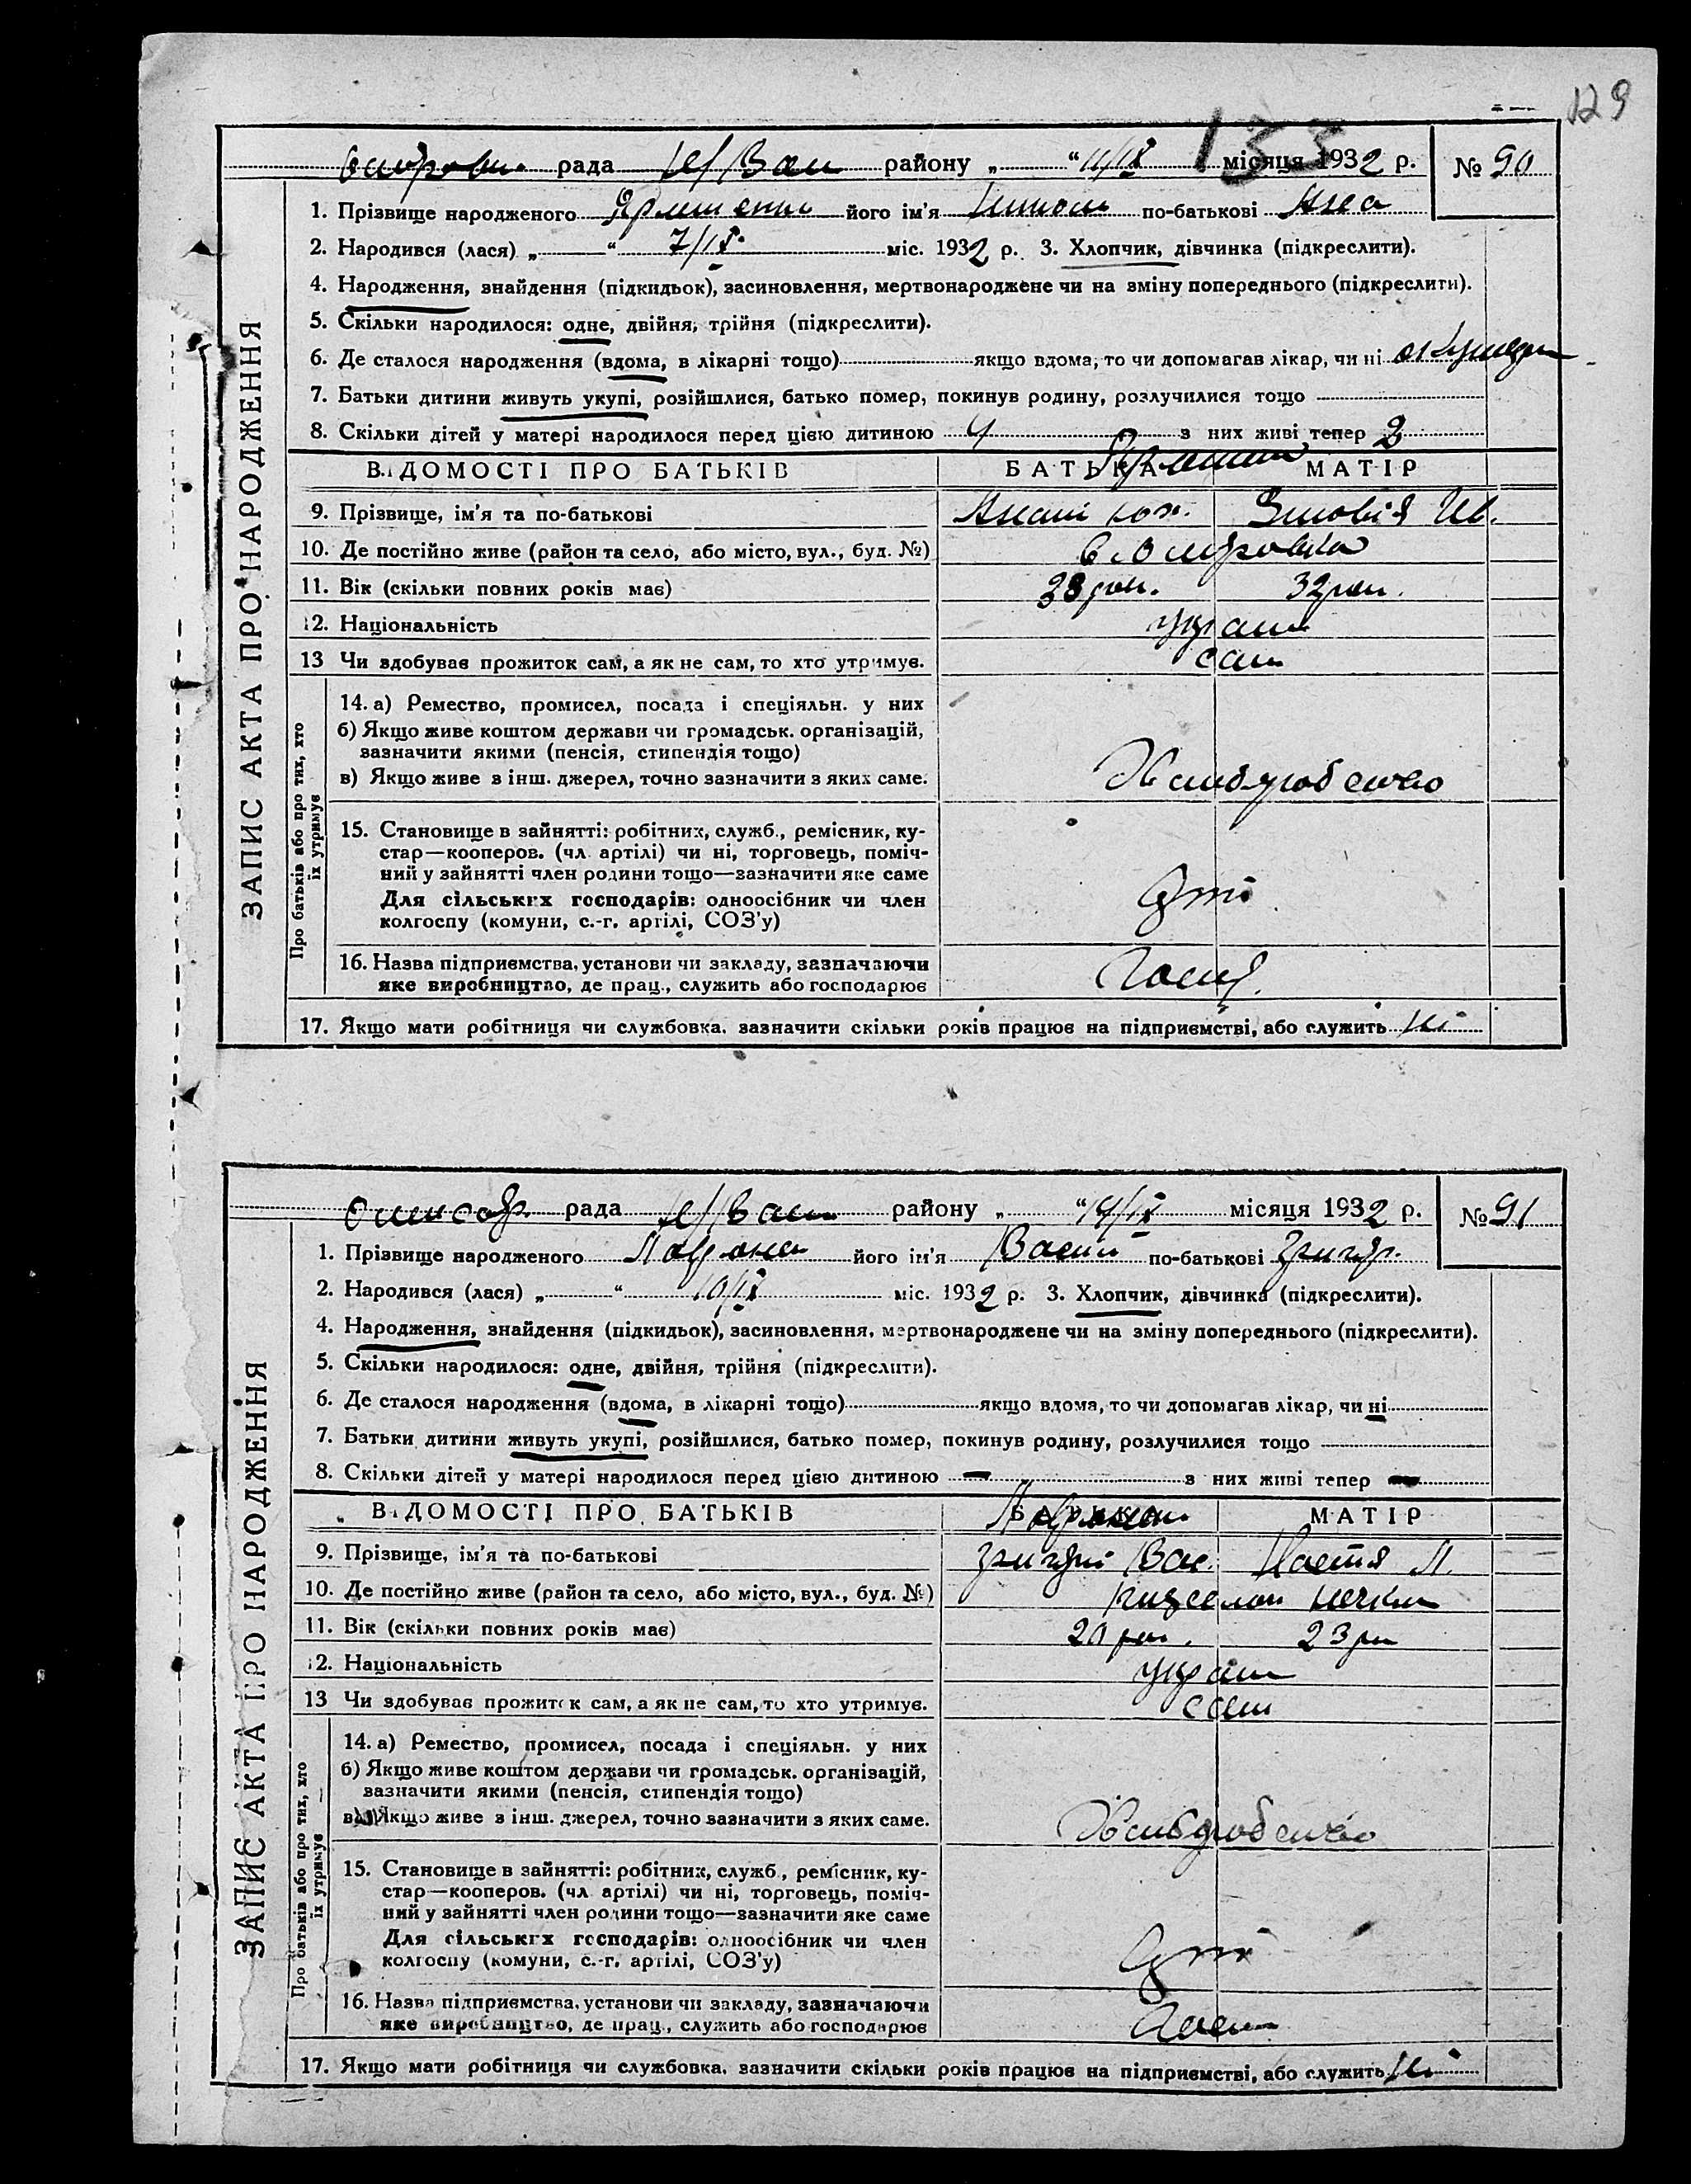 129
133
рада района „ “ 11/IX місяця 1932 р. № 90
1. Прізвище народженого його ім'я по-батькові
2. Народився (лася) „ “ 7/IX міс. 1932 р. 3. Хлопчик, дівчинка (підкреслити).
4. Народження, знайдення (підкидьок), засиновлення, мертвонароджене чи на зміну попереднього (підкреслити).
5. Скільки народилося: одне, двійня, трійня (підкреслити).
6. Де сталося народження (вдома, в лікарні тощо) якщо вдома, то чи допомагав лікар, чи ні
7. Батьки дитини живуть укупі, розійшлися, батько помер, покинув родину, розлучилися тощо
8. Скільки дітей у матері народилося перед цією дитиною 4 з них живі тепер 2
ВІДОМОСТІ ПРО БАТЬКІВ БАТЬКА МАТІР
9. Прізвище, ім'я та по-батькові Зиновія Ів.
10. Де постійно живе (район та село, або місто, вул., буд. №)
11. Вік (скільки повних років має) 38 рок. 32 рок.
12. Національність україн
13 Чи здобуває прожиток сам, а як не сам, то хто утримує. сам
14. а) Ремество, промисел, посада і спеціяльн. у них
б) Якщо живе коштом держави чи громадськ. організацій,
зазначити якими (пенсія, стипендія тощо)
в) Якщо живе з інш. джерел, точно зазначити з яких саме. Хлібдробство
15. Становище в зайнятті: робітник, служб., ремісник, ку-
стар—кооперов. (чл. артілі) чи ні, торговець, поміч-
ний у зайнятті член родини тощо—зазначити яке саме
Для сільських господарів: одноосібник чи член
колгоспу (комуни, с.-г. артілі, СОЗ'у)
16. Назва підприємства, установи чи закладу, зазначаючи
яке виробництво, де прац., служить або господарює
17. Якщо мати робітниця чи службовка, зазначити скільки років працює на підприємстві, або служить ні
ЗАПИС АКТА ПРО НАРОДЖЕННЯ
Про батьків або про тих, хто
їх утримує
рада району „ “ 14/IX місяця 1932 р. № 91
1. Прізвище народженого його ім'я Васил по-батькові Григор.
2. Народився (лася) „ “ 10/IX міс. 1932 р. 3. Хлопчик, дівчинка (підкреслити).
4. Народження, знайдення (підкидьок), засиновлення, мертвонароджене чи на зміну попереднього (підкреслити).
5. Скільки народилося: одне, двійня, трійня (підкреслити).
6. Де сталося народження (вдома, в лікарні тощо) якщо вдома, то чи допомагав лікар, чи ні
7. Батьки дитини живуть укупі, розійшлися, батько помер, покинув родину, розлучилися тощо
8. Скільки дітей у матері народилося перед цією дитиною — з них живі тепер —
ВІДОМОСТІ ПРО БАТЬКІВ БАТЬКА МАТІР
9. Прізвище, ім'я та по-батькові Григорій Вас. Настя П.
10. Де постійно живе (район та село, або місто, вул., буд. №)
11. Вік (скільки повних років має) 20 рок. 23 рок
12. Національність україн
13 Чи здобуває прожиток сам, а як не сам, то хто утримує. сам
14. а) Ремество, промисел, посада і спеціяльн. у них
б) Якщо живе коштом держави чи громадськ. організацій,
зазначити якими (пенсія, стипендія тощо)
в) Якщо живе з інш. джерел, точно зазначити з яких саме. Хлібдробство
15. Становище в зайнятті: робітник, служб., ремісник, ку-
стар—кооперов. (чл. артілі) чи ні, торговець, поміч-
ний у зайнятті член родини тощо—зазначити яке саме
Для сільських господарів: одноосібник чи член
колгоспу (комуни, с.-г. артілі, СОЗ'у)
16. Назва підприємства, установи чи закладу, зазначаючи
яке виробництво, де прац., служить або господарює
17. Якщо мати робітниця чи службовка, зазначити скільки років працює на підприємстві, або служить ні
ЗАПИС АКТА ПРО НАРОДЖЕННЯ
Про батьків або про тих, хто
їх утримує